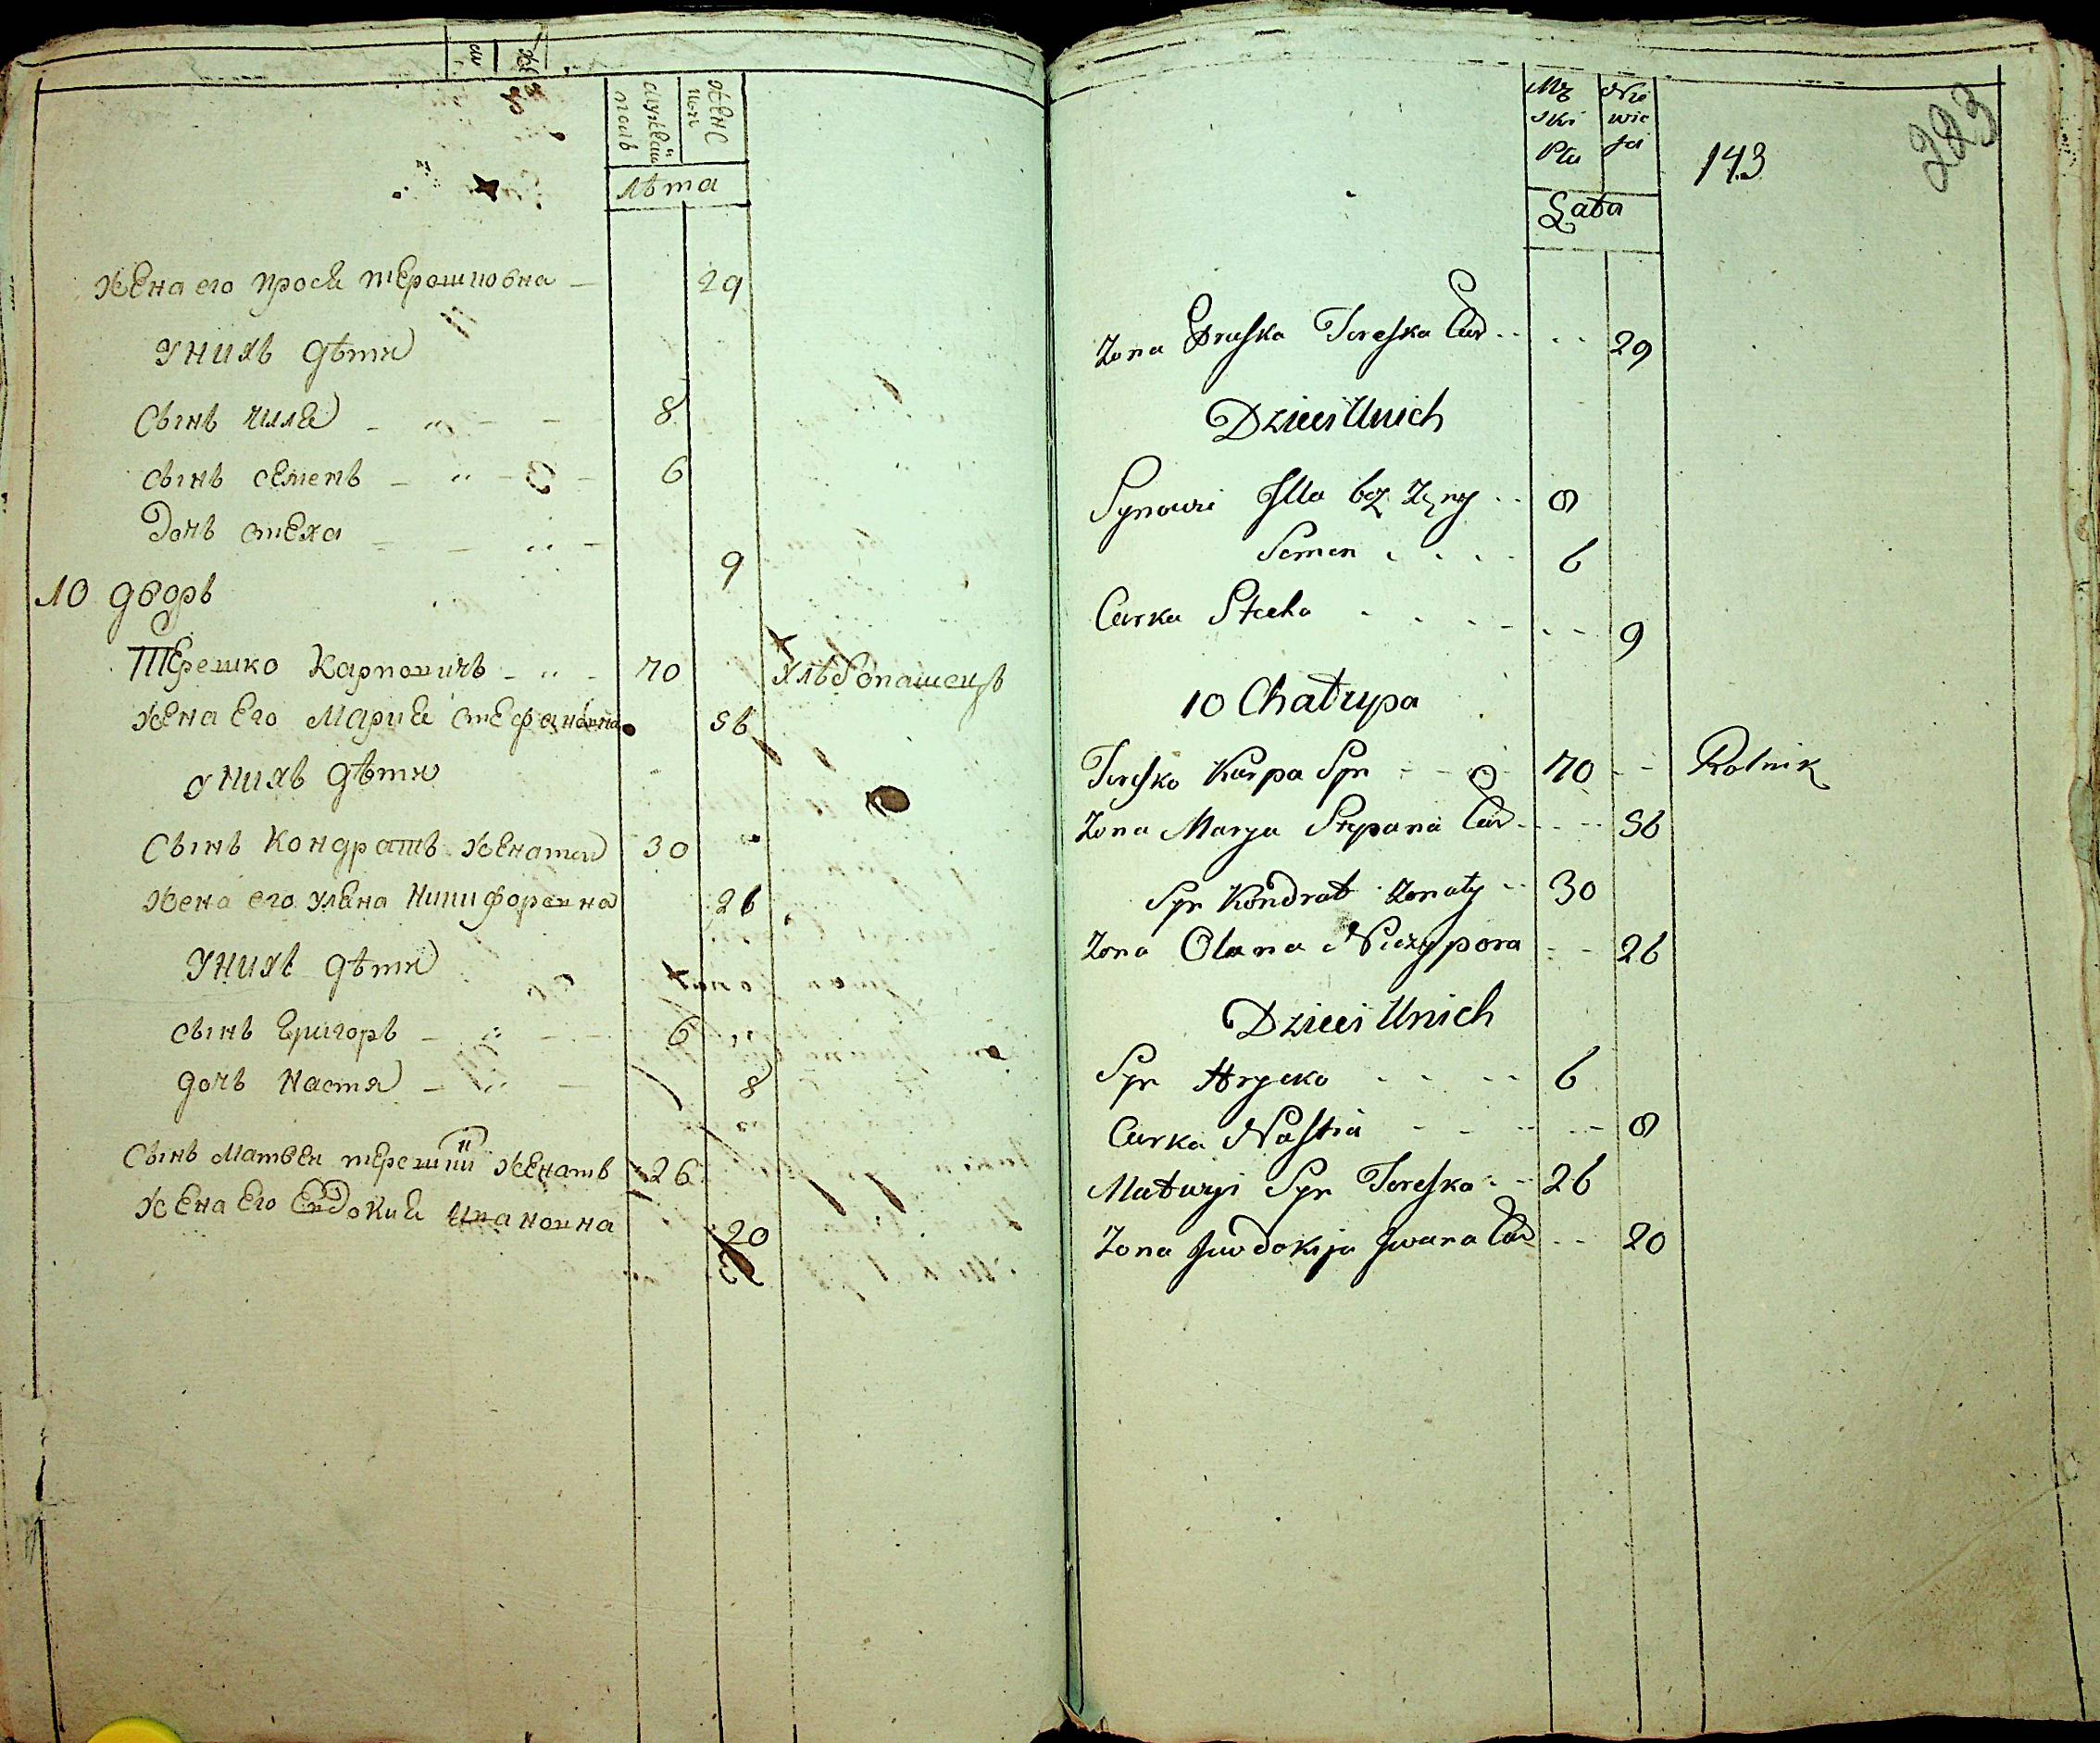 мужеска полъ
женс полъ
лѣта
жена его Прося терошковна 29
у нихъ дѣти
Сынъ Илля 8
сынъ семенъ 6
Дочь стеха 9
10 дворъ
Терешко Карповичъ 70 хлѣбопашецъ
жена Его Мария стефановна 56
у нихъ дѣти
Сынъ Кондратъ женатъ 30
жена его Уляна Никифоровна 26
у нихъ дѣти
сынъ Григоръ 6
дочь Настя 8
Сынъ Матвей терешки женатъ 26
жена Его Евдокия Ивановна 20
Mę ski Płci
Nie wie ści
Łata
143
223
Zona Pruska Tereszka Cur 29
Dzieci Unich
Synowi Illa bez Żeny 8
Semen 6
Curka Stecha 9
10 Chatupa
Tereszko Karpa Syn 70 Rolnik
Zona Marya Stepana Cur 56
Syn Kondrat żonaty 30
Zona Olana Niczypora 26
Dzieci Unich
Syn Hrycko 6
Curka Nastia 8
Matwyi Syn Tereszka 26
Zona Juwdokija Jwana Cur 20